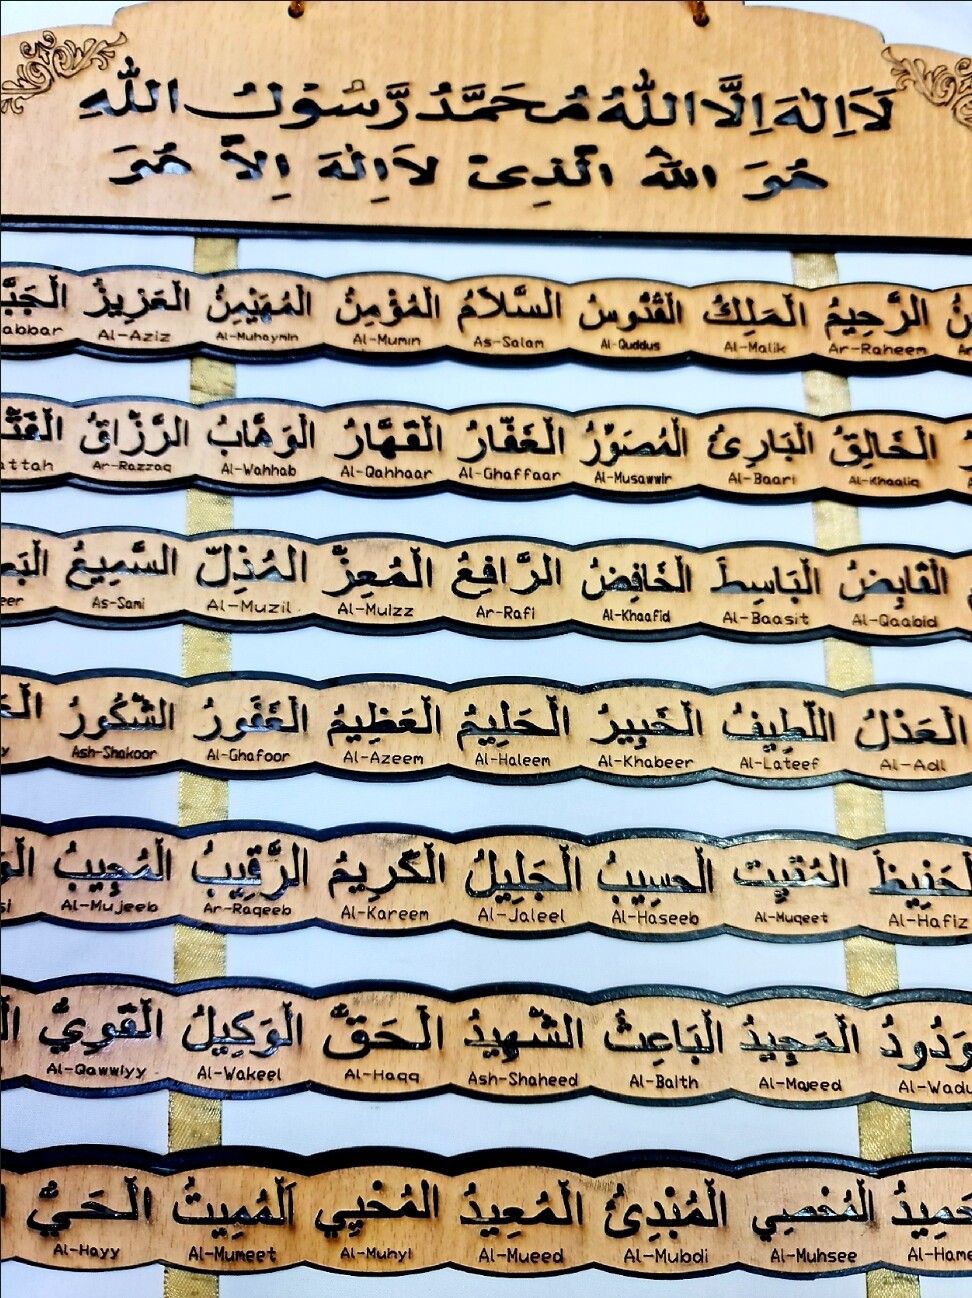 لَآ اِلٰهَ اِلَّا اللّٰهُ مُحَمَّدٌ رَّسُوْلُ اللّٰهِ
هُوَ اللّٰهُ الَّذِىْ لَآ اِلٰهَ اِلَّا هُوَ
الرَّحِيمُ الْمَلِكُ الْقُدُّوسُ السَّلاَمُ الْمُؤْمِنُ الْمُهَيْمِنُ الْعَزِيزُ
Ar-Raheem Al-Malik Al-Quddus As-Salam Al-Mumin Al-Muhaymin Al-Aziz
الْخَالِقُ الْبَارِئُ الْمُصَوِّرُ الْغَفَّارُ الْقَهَّارُ الْوَهَّابُ الرَّزَّاقُ
Al-Khaaliq Al-Baari Al-Musawwir Al-Ghaffaar Al-Qahhaar Al-Wahhab Ar-Razzaq
الْقَابِضُ الْبَاسِطُ الْخَافِضُ الرَّافِعُ الْمُعِزُّ الْمُذِلُّ السَّمِيعُ
Al-Qaabid Al-Baasit Al-Khaafid Ar-Rafi Al-Muizz Al-Muzil As-Sami
الْعَدْلُ اللَّطِيفُ الْخَبِيرُ الْحَلِيمُ الْعَظِيمُ الْغَفُورُ الشَّكُورُ
Al-Adl Al-Lateef Al-Khabeer Al-Haleem Al-Azeem Al-Ghafoor Ash-Shakoor
الْحَفِيظُ الْمُقِيتُ الْحسِيبُ الْجَلِيلُ الْكَرِيمُ الرَّقِيبُ الْمُجِيبُ
Al-Hafiz Al-Muqeet Al-Haseeb Al-Jaleel Al-Kareem Ar-Raqeeb Al-Mujeeb
الْمَجِيدُ الْبَاعِثُ الشَّهِيدُ الْحَقُّ الْوَكِيلُ الْقَوِيُّ
Al-Majeed Al-Baith Ash-Shaheed Al-Haqq Al-Wakeel Al-Qawwiyy
الْمُحْصِي الْمُبْدِئُ الْمُعِيدُ الْمُحْيِي الْمُمِيتُ الْحَيُّ
Al-Muhsee Al-Mubdi Al-Mueed Al-Muhyi Al-Mumeet Al-Hayy